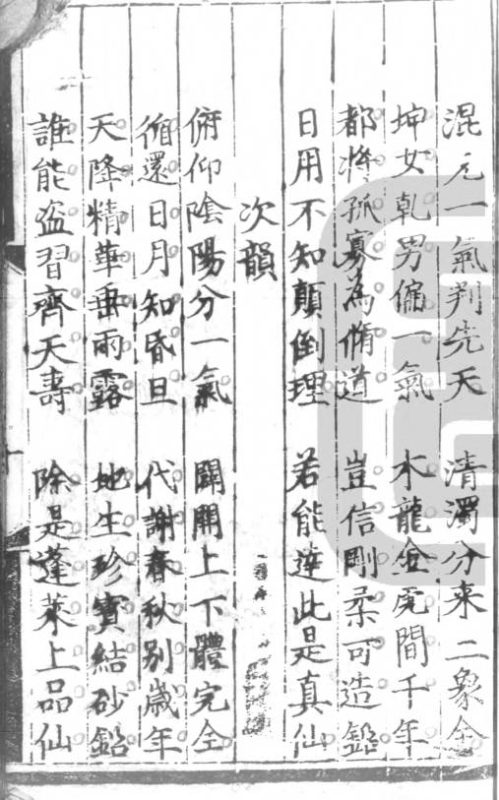 混元一氣判先天 清濁分來二象全
坤女乹男偹一氣 木龍金虎間千年
都將孤寡為脩道 豈信剛柔可造鉛
日用不知顛倒理 若能達此是真仙
次韻
俯仰陰陽分一氣 闢開上下體完全
循還日月知昏旦 代謝春秋別歲年
天降精華垂雨露 地生珍寶結砂鉛
誰能盗習齊天壽 除是蓬萊上品仙